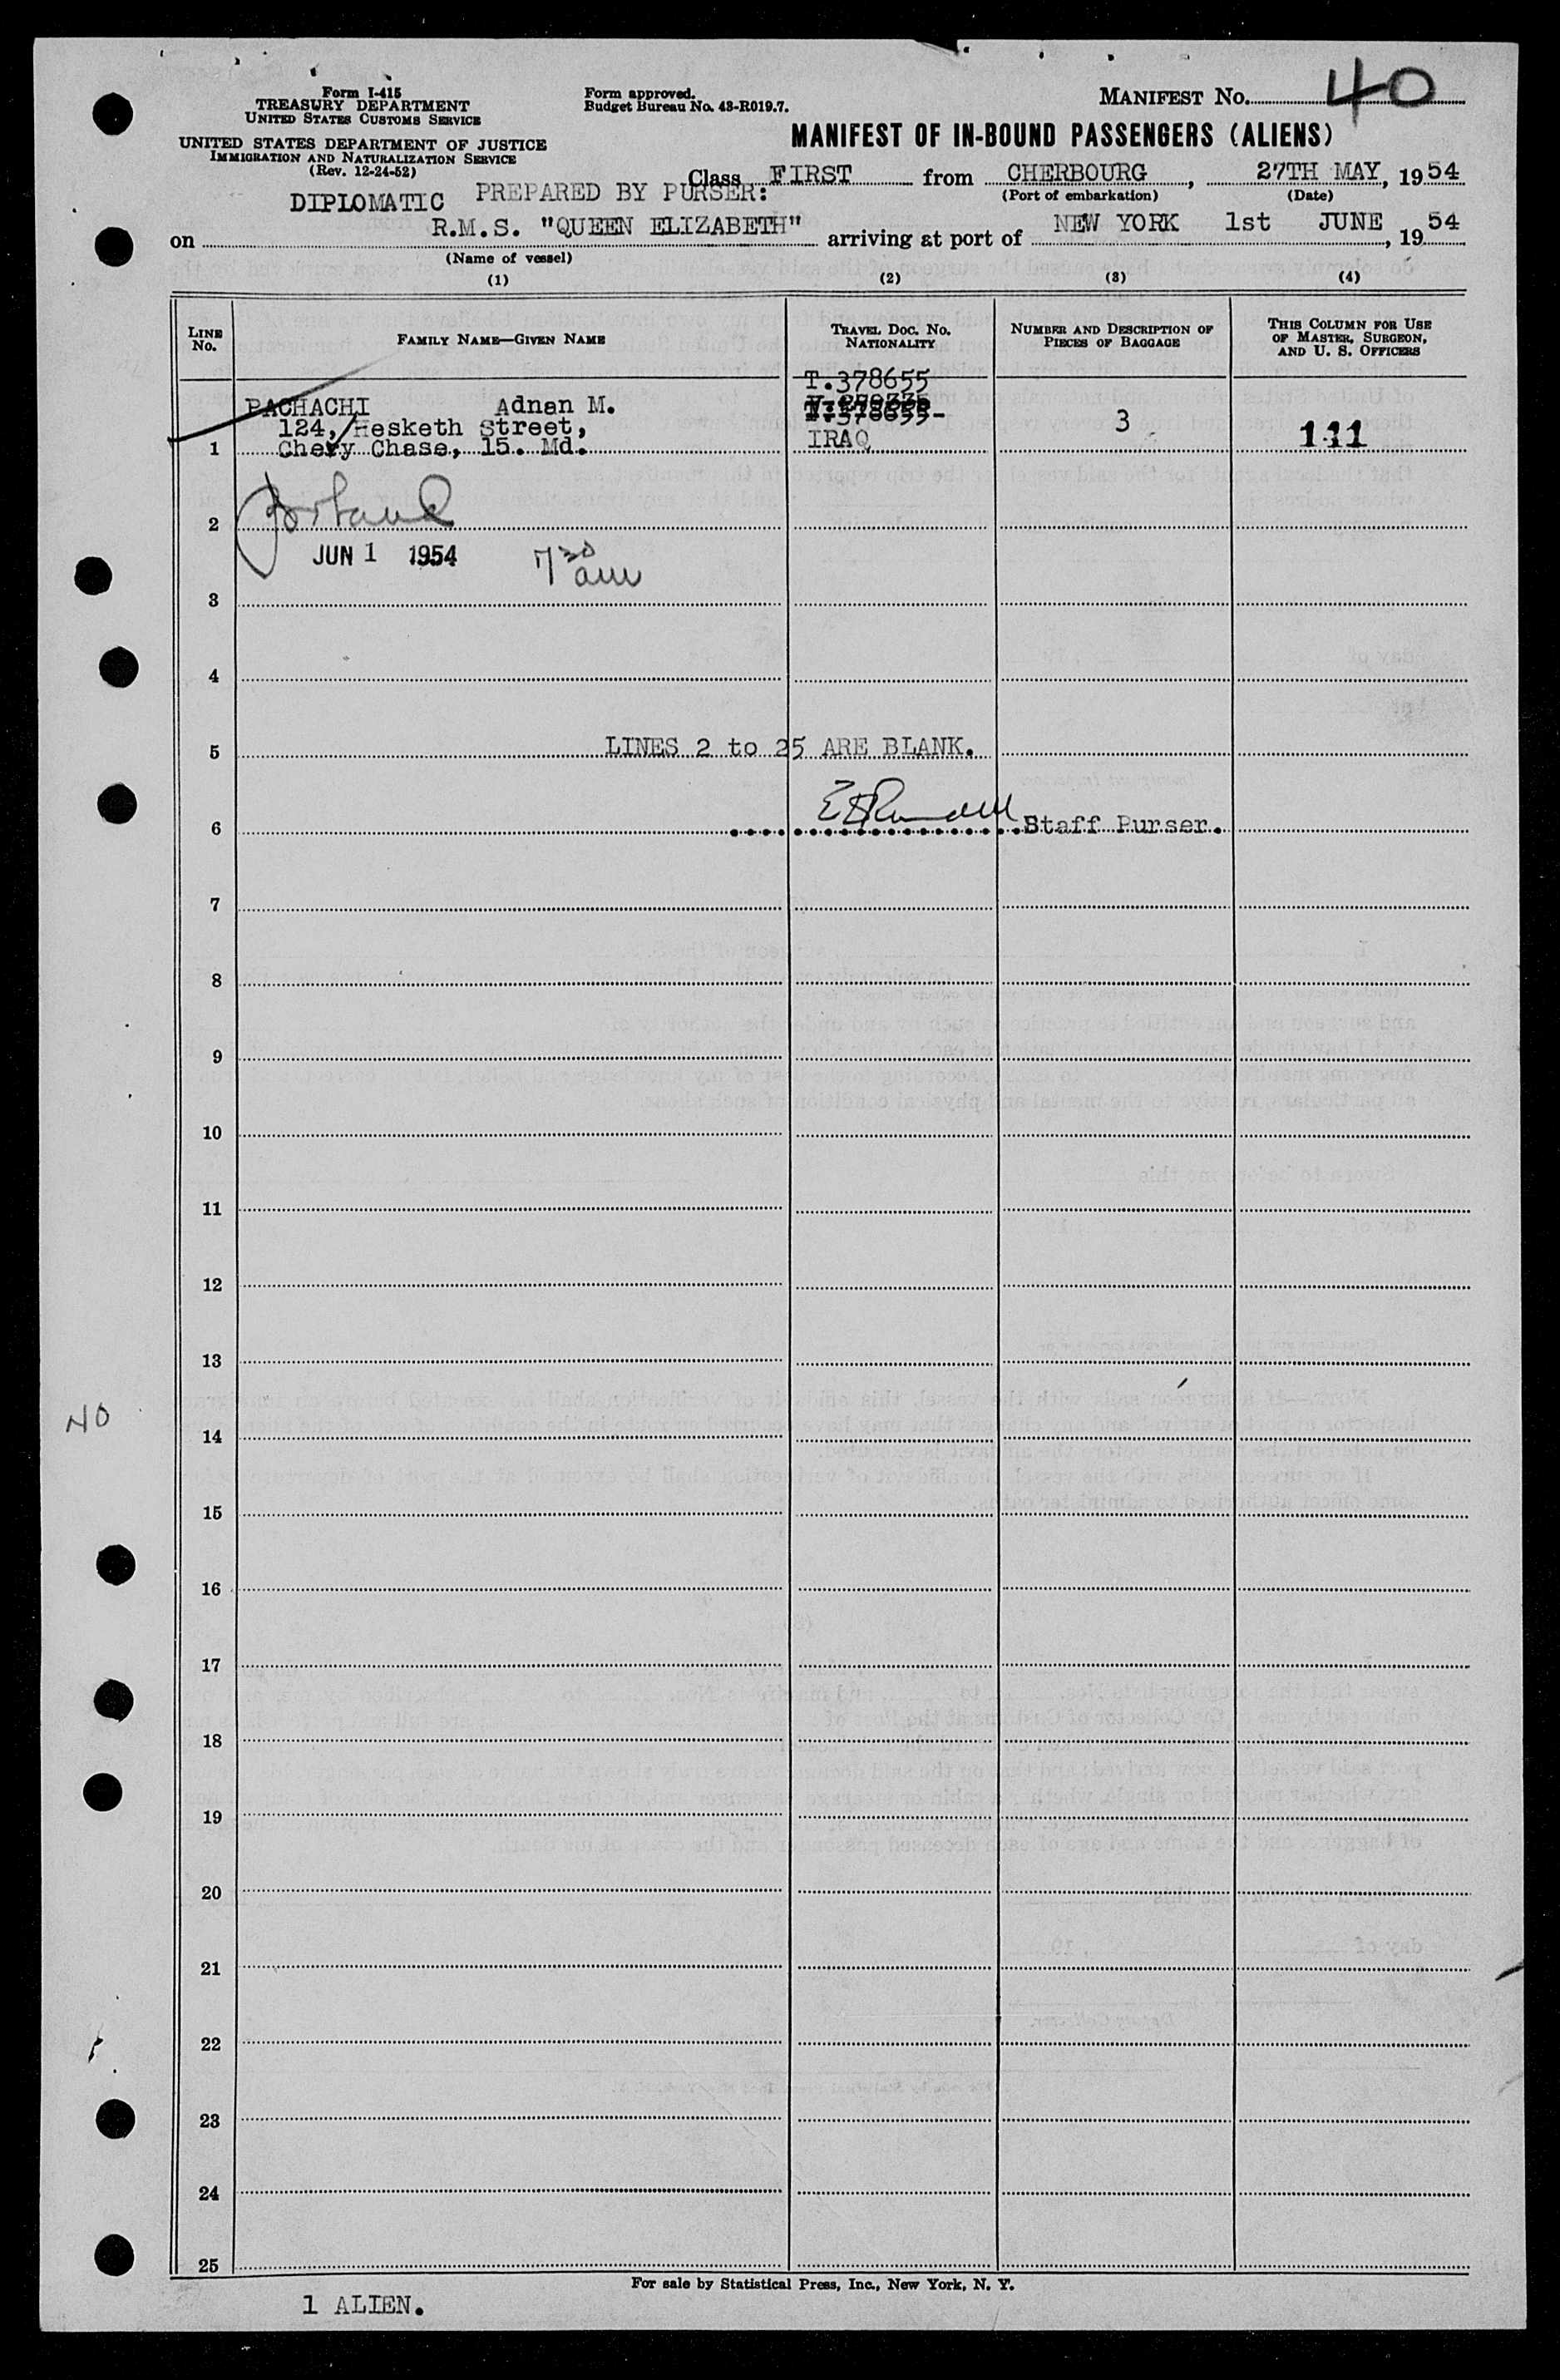 Form I-415
TREASURY DEPARTMENT
UNITED STATES CUSTOMS SERVICE
UNITED STATES DEPARTMENT OF JUSTICE
IMMIGRATION AND NATURALIZATION SERVICE
(Rev. 12-24-52)
Form approved.
Budget Bureau No. 43-R019.7.
MANIFEST No. 40
MANIFEST OF IN-BOUND PASSENGERS (ALIENS)
Class FIRST from CHERBOURG, 27TH MAY, 1954
(Port of embarkation) (Date)
DIPLOMATIC PREPARED BY PURSER:
on R.M.S. "QUEEN ELIZABETH" arriving at port of NEW YORK 1st JUNE, 1954
(Name of vessel)
(1) (2) (3) (4)
LINE No. FAMILY NAME—GIVEN NAME TRAVEL DOC. No. NATIONALITY NUMBER AND DESCRIPTION OF PIECES OF BAGGAGE THIS COLUMN FOR USE OF MASTER, SURGEON, AND U. S. OFFICERS
T.378655
PACHACHI Adnan M.
124, Hesketh Street, 3
1 Chevy Chase, 15. Md. IRAQ 111
2
JUN 1 1954 7 30 am
3
4
5 LINES 2 to 25 ARE BLANK.
6 Staff Purser.
7
8
9
10
11
12
13
40
14
15
16
17
18
19
20
21
22
23
24
25
For sale by Statistical Press, Inc., New York, N. Y.
1 ALIEN.